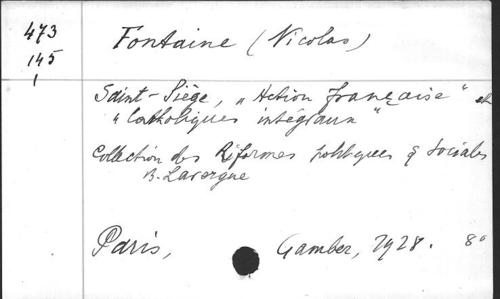 473
145
1
Fontaine (Nicolas)
Saint-Siège, „Action française" et
„Catholiques intégraux"
Collection des Réformes politiques & sociales
B. Lavergne
Paris, Gamber, 1928. 8°